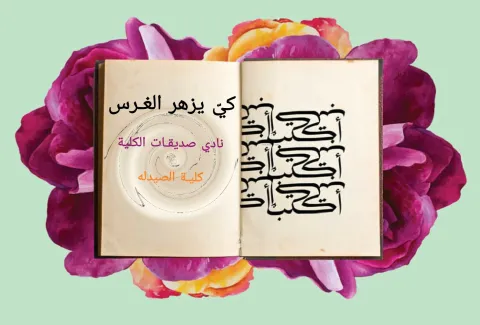 أكتب
أكتب
أكتب
كيّ يزهر الغرس
نادي صديقات الكلية
كلية الصيدله